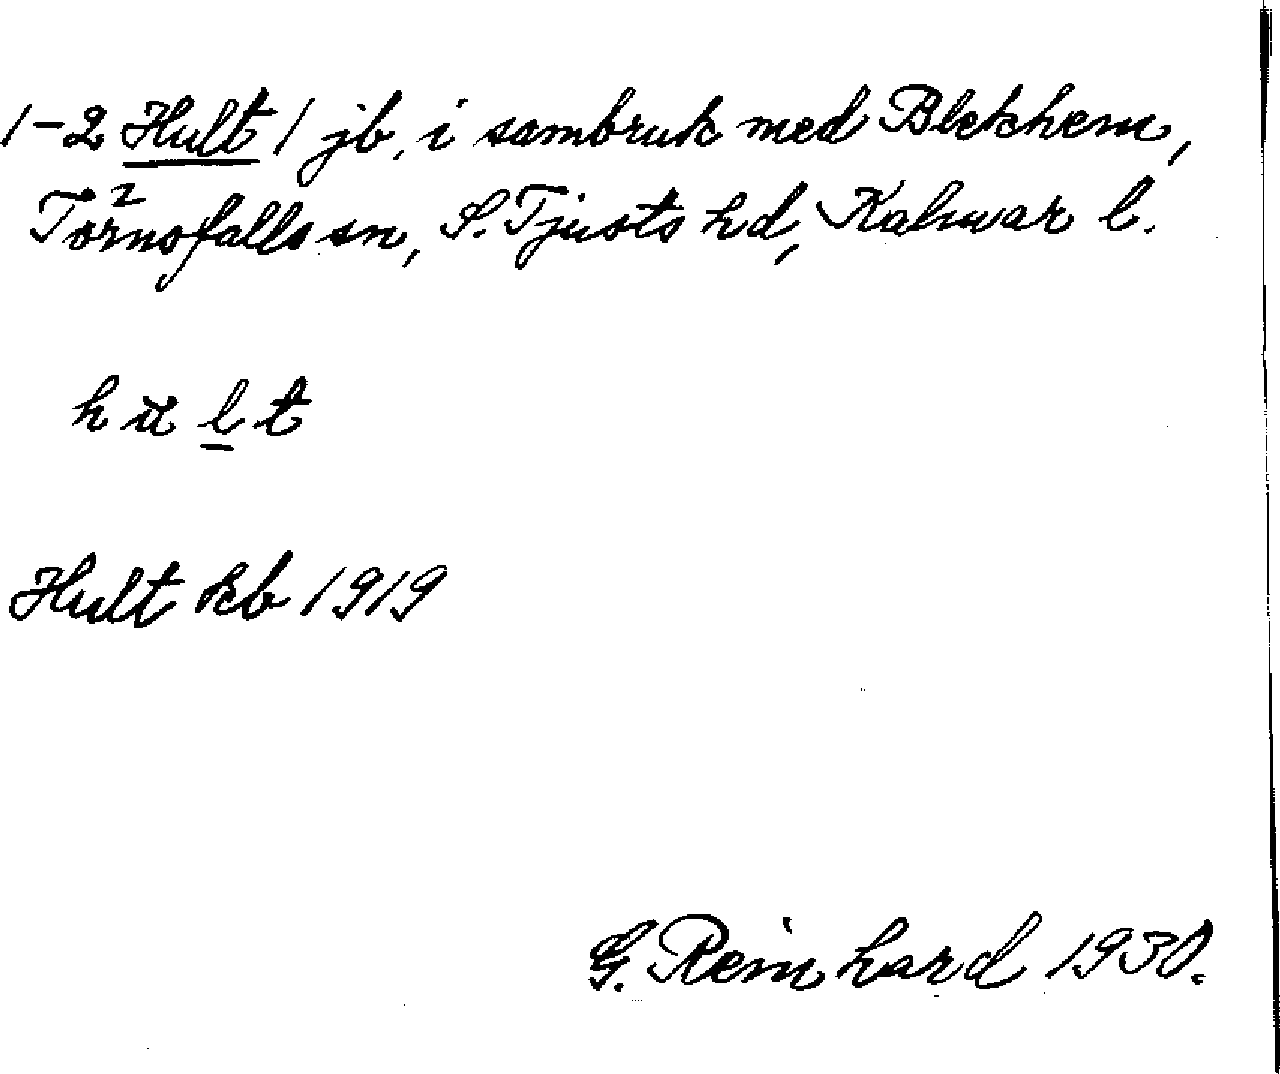 1-2 Hult 1 jb, i sambruk med Blekhem,
Törnsfalls sn, S. Tjusts hd, Kalmar l.
h u l t
Hult kb 1919
G. Reinhard 1930.